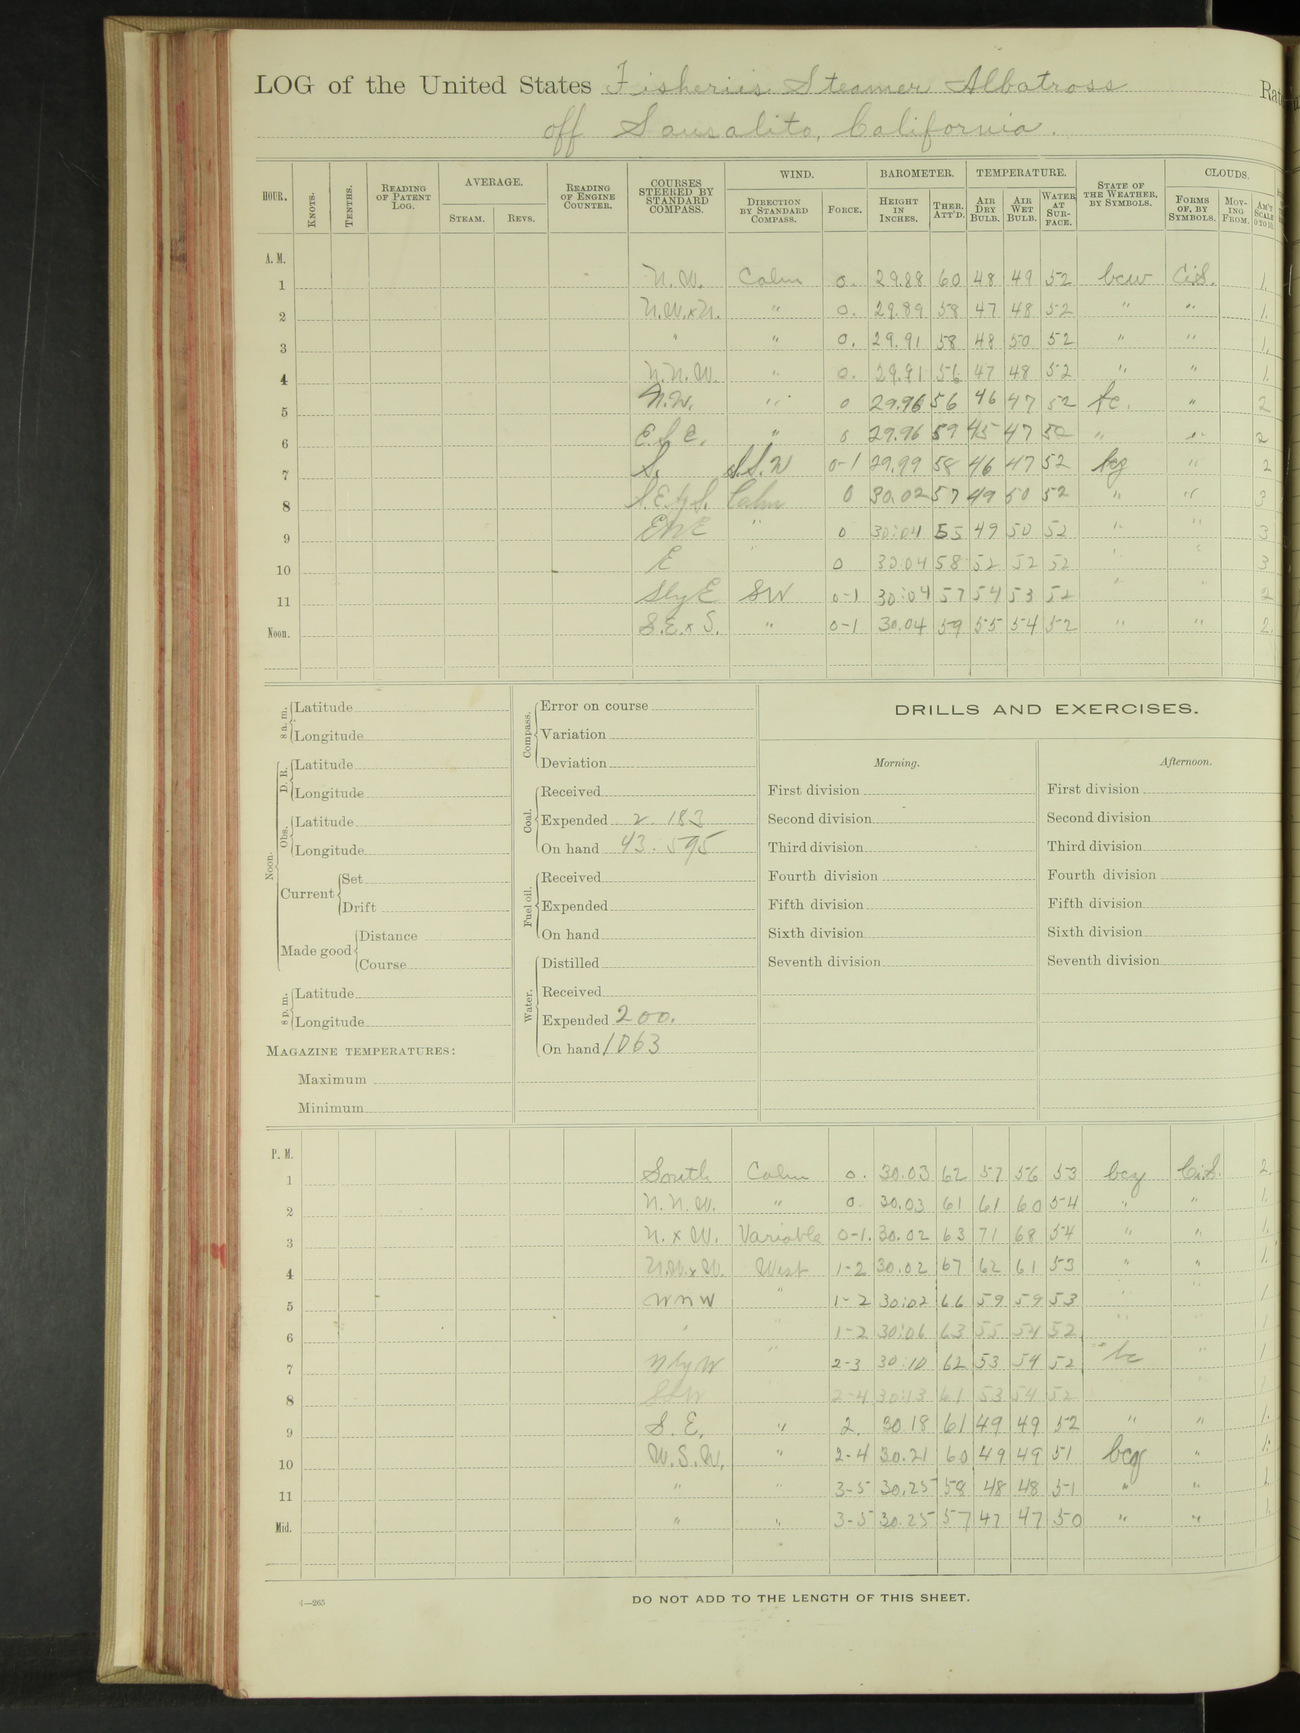 LOG of the United States Fisheries Steamer Albatross Rat
off Sausalito, California.
HOUR. KNOTS. TENTHS. READING OF PATENT LOG. AVERAGE. STEAM. REVS. READING OF ENGINE COUNTER. COURSES STEERED BY STANDARD COMPASS. WIND. DIRECTION BY STANDARD COMPASS. FORCE. BAROMETER. HEIGHT IN INCHES. THER. ATT'D. TEMPERATURE. AIR DRY BULB. AIR WET BULB. WATER AT SURFACE. STATE OF THE WEATHER, BY SYMBOLS. CLOUDS. FORMS OF, BY SYMBOLS. MOVING FROM. AM'T SCALE 0 TO 10.
A. M.
1 N.W. Calm 0. 29.88 60 48 49 52 bcw Ci.S. 1.
2 N.W.xN. " 0. 29.89 58 47 48 52 " " 1.
3 " " 0. 29.91 58 48 50 52 " " 1.
4 N.N.W. " 0. 29.91 56 47 48 52 " " 1.
5 N.W. " 0 29.96 56 46 47 52 fc. " 2
6 E.S.E. " 0 29.96 59 45 47 50 " " 2
7 S. S.S.W 0-1 29.99 58 46 47 52 bcg " 2
8 S.E.byS. Calm 0 30.02 57 49 50 52 " " 3
9 ENE " 0 30:04 55 49 50 52 " " 3
10 E " 0 30.04 58 52 52 52 " " 3
11 SbyE SW 0-1 30:04 57 54 53 52 " " 2
Noon. S.E.xS. " 0-1 30.04 59 55 54 52 " " 2.
8 a. m. Latitude
Longitude
Noon. D. R. Latitude
Longitude
Obs. Latitude
Longitude
Current Set
Drift
Made good Distance
Course
8 p. m. Latitude
Longitude
MAGAZINE TEMPERATURES:
Maximum
Minimum
Compass. Error on course
Variation
Deviation
Coal. Received
Expended 2 183
On hand 43. 595
Fuel oil. Received
Expended
On hand
Water. Distilled
Received
Expended 200.
On hand 1063
DRILLS AND EXERCISES.
Morning. Afternoon.
First division First division
Second division Second division
Third division Third division
Fourth division Fourth division
Fifth division Fifth division
Sixth division Sixth division
Seventh division Seventh division
P. M.
1 South Calm 0. 30.03 62 57 56 53 bcg Ci.S. 2.
2 N.N.W. " 0. 30.03 61 61 60 54 " " 1.
3 N.xW. Variable 0-1. 30.02 63 71 68 54 " " 1.
4 N.W.xW. West 1-2 30.02 67 62 61 53 " " 1.
5 WNW " 1-2 30:02 66 59 59 53 " " 1
6 " " 1-2 30:06 63 55 54 52 " " 1
7 NbyW " 2-3 30:10 62 53 54 52 bc " 1
8 2-4 30:13 61 53 54 52
9 S.E. " 2. 30.18 61 49 49 52 " " 1.
10 W.S.W. " 2-4 30.21 60 49 49 51 bcg " 1.
11 " " 3-5 30.25 58 48 48 51 " " 1.
Mid. " " 3-5 30.25 57 47 47 50 " " 1.
4—265
DO NOT ADD TO THE LENGTH OF THIS SHEET.